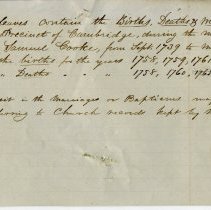 leaves contain the Births, Deaths, &
Precinct of Cambridge, during the
Samuel Cooke, from Sept 1739 to
the births for the years 1758, 1759, 1761
" Deaths " " 1758, 1760, 1762
in the Marriages or Baptisms
to Church records kept by